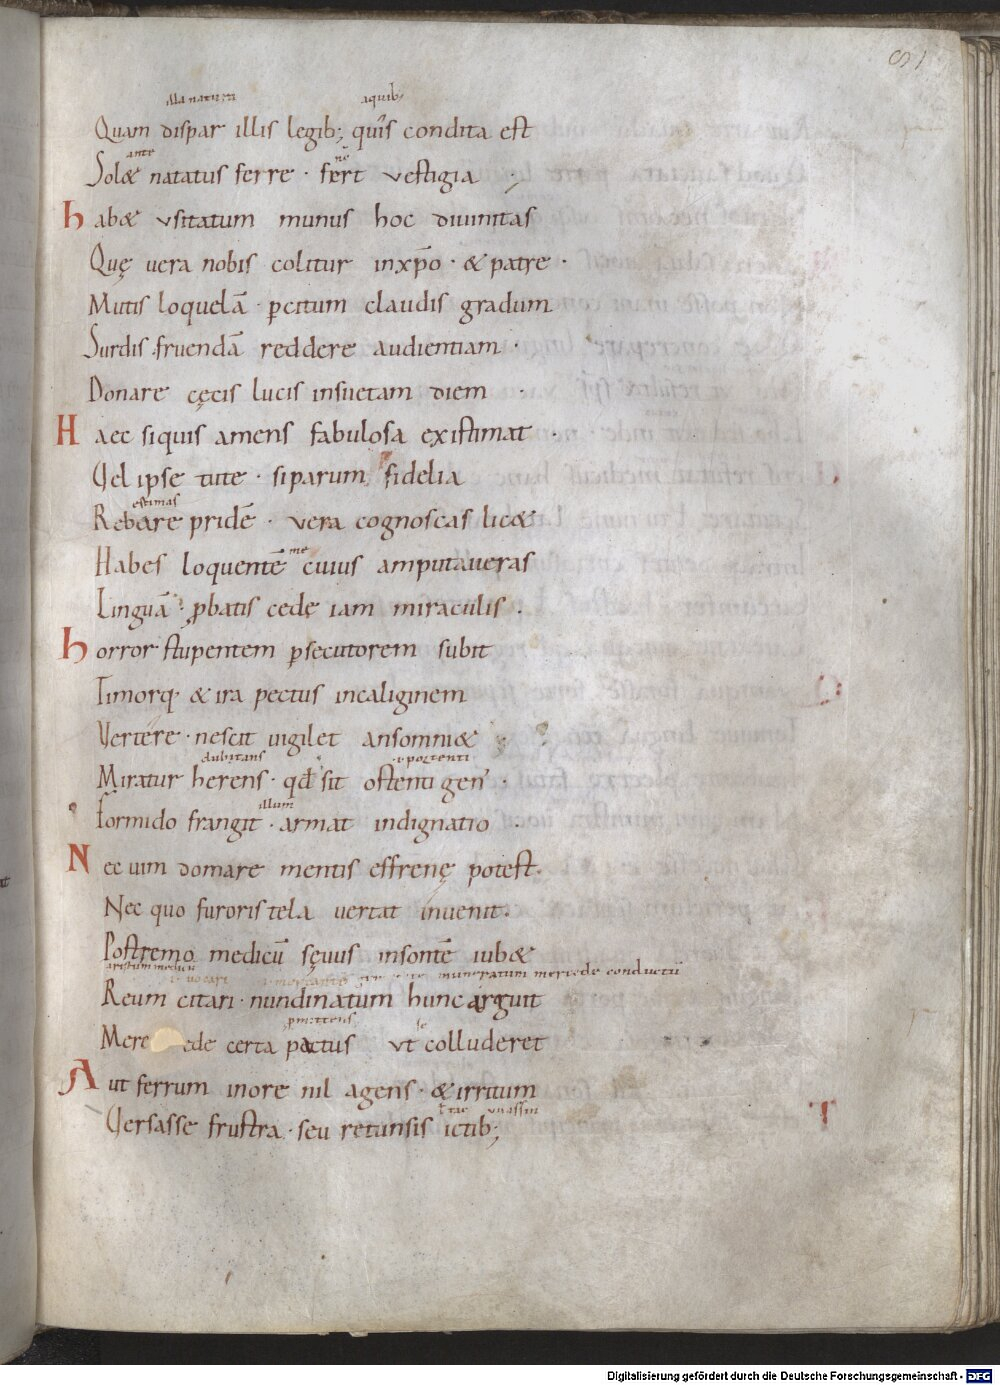 81
illa natura aquib;
Quam dispar illis legib; quis condita est
ante ne
Solæ natatus ferre · fert vestigia
habæ vsitatum munus hoc diuinitas
Quę uera nobis colitur inxp̄o · & patre ·
Mutis loquelā · ꝑcitum claudis gradum
Surdis fruendā reddere audientiam ·
Donare cęcis lucis insuetam diem ·
Haec siquis amens fabulosa existimat ·
Vel ipse tute · siparum fidelia
estimas
Rebare pridē · vera cognoscas licæ
me
Habes loquentē cuius amputaueras
Linguā · ꝓbatis cede iam miraculis ·
horror stupentem ꝑsecutorem subit
Timorq; & ira pectus incaliginem
Vertere · nescit uigilet ansomniæ
dubitans portenti
Miratur herens · qđ sit ostenti gen᾽ ·
illum
Formido frangit · armat indignatio ·
Nec uim domare mentis effrenę potest ·
Nec quo furoris tela uertat inuenit ·
Postremo medicū sęuus insontē iubæ
muneratum mercede conductū
Reum citari · nundinatum hunc arguit
ꝓmittens se
Mere ede certa pactus vt colluderet
Aut ferrum inore nil agens · & irritum
Versasse frustra · seu retunsis ictib;
T
Digitalisierung gefördert durch die Deutsche Forschungsgemeinschaft - DFG